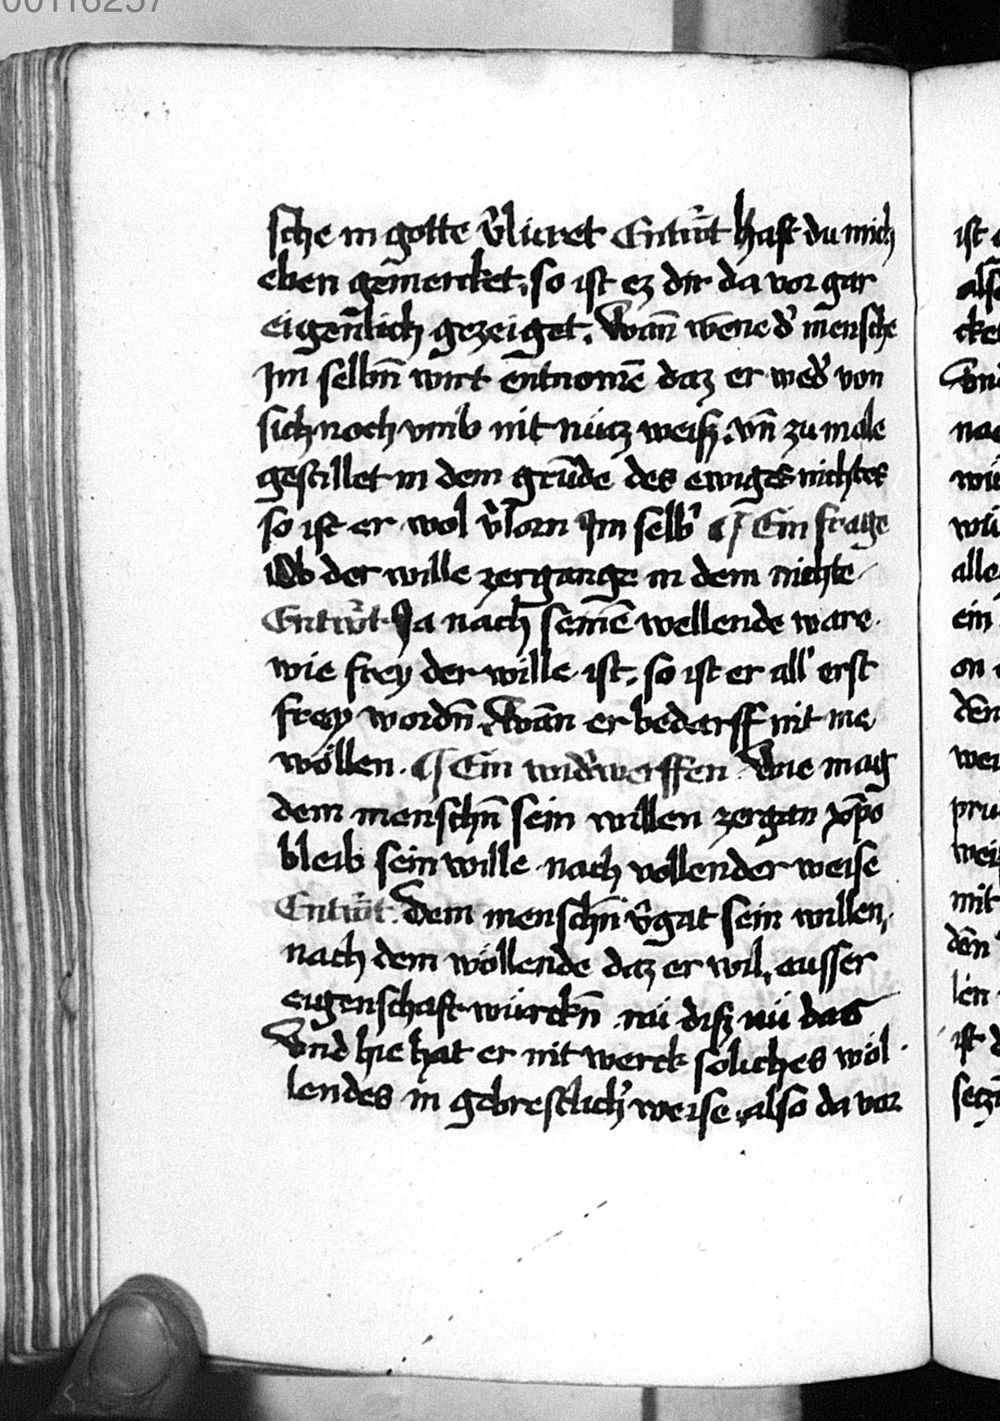 00116257
sche in gotte v̾lieret Entw̾t Hast du mich
eben gem̄ercket, so ist ez dir da vor gar
eigen̄lich gezeiget. Wan̄ wēne d̾ m̄ensche
Im selbn̄ wirt ēntnom̄e daz er wed̾ von
sich noch vmb nit nütz weiß, vn̄ zu male
gestillet in dem grūde des ewigēs nichtes
so ist er wol v̾lorn Im selb̾ ¶ Ein frage
Ob der wille zergange in dem nichte
Entw̾t Ja nach seinē wellende ware
wie frey der wille ist, so ist er all̾ erst
frey wordn̄ Wān er bedarff nit me
wöllen. ¶ Ein wid̾werffen Wie mag
dem menschn̄ sein willen zergan xp̄o
bleib sein wille nach vollender weise
Entw̾t. Dem menschn̄ v̾gat sein willen,
nach dem wöllende daz er wil, ausser
eigenschaft würckn̄ nü diß nü das
Vnd hie hat er nit werck soliches wöl
lendes in gebrestlich̾ weise, also da vor
ist